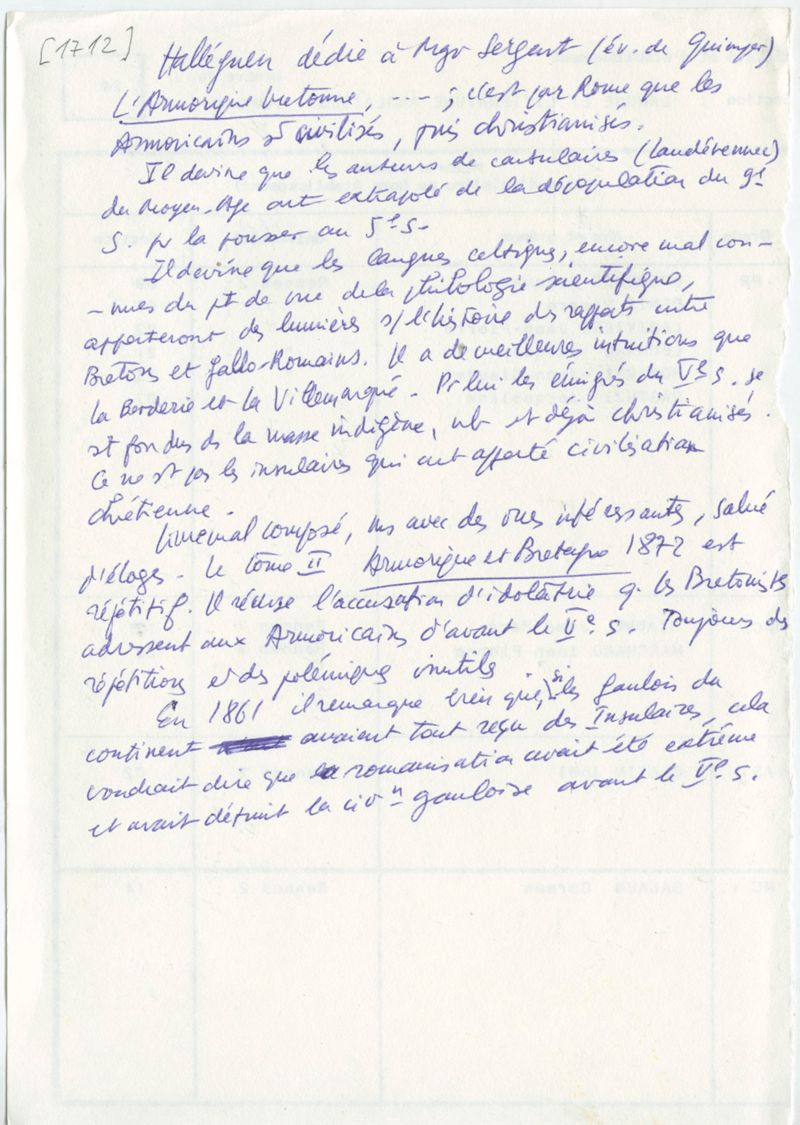 [1712]
Halléguen dédie à Mgr Sergent (év. de Quimper)
L'Armorique bretonne --- ; c'est par Rome que les
Armoricains st civilisés, puis christianisés.
Il devine que les auteurs de cartulaires (Landévennec)
du Moyen-Age ont extrapolé de la dépopulation du 9e
S. pr la pousser au 5e S.
Il devine que les langues celtiques, encore mal con-
-nues du pt de vue de la philologie scientifique,
apporteront des lumières s/ l'histoire des rapports entre
Bretons et Gallo-Romains. Il a de meilleures intuitions que
la Borderie et la Villemarqué. Pr lui les émigrés du Ve s. se
st fondus ds la masse indigène, nb et déjà christianisés.
Ce ne st pas les insulaires qui ont apporté civilisation
chrétienne.
Livre mal composé, ms avec des vues intéressantes, salué
d'éloges. Le tome II Armorique et Bretagne 1872 est
répétitif. Il récuse l'accusation d'idolâtrie q. les Bretonistes
adressent aux Armoricains d'avant le Ve s. Toujours des
répétitions et des polémiques inutiles.
En 1861 il remarque bien que, si les Gaulois du
continent avaient tout reçu des Insulaires, cela
voudrait dire que la romanisation avait été extrême
et avait détruit la civn gauloise avant le Ve s.